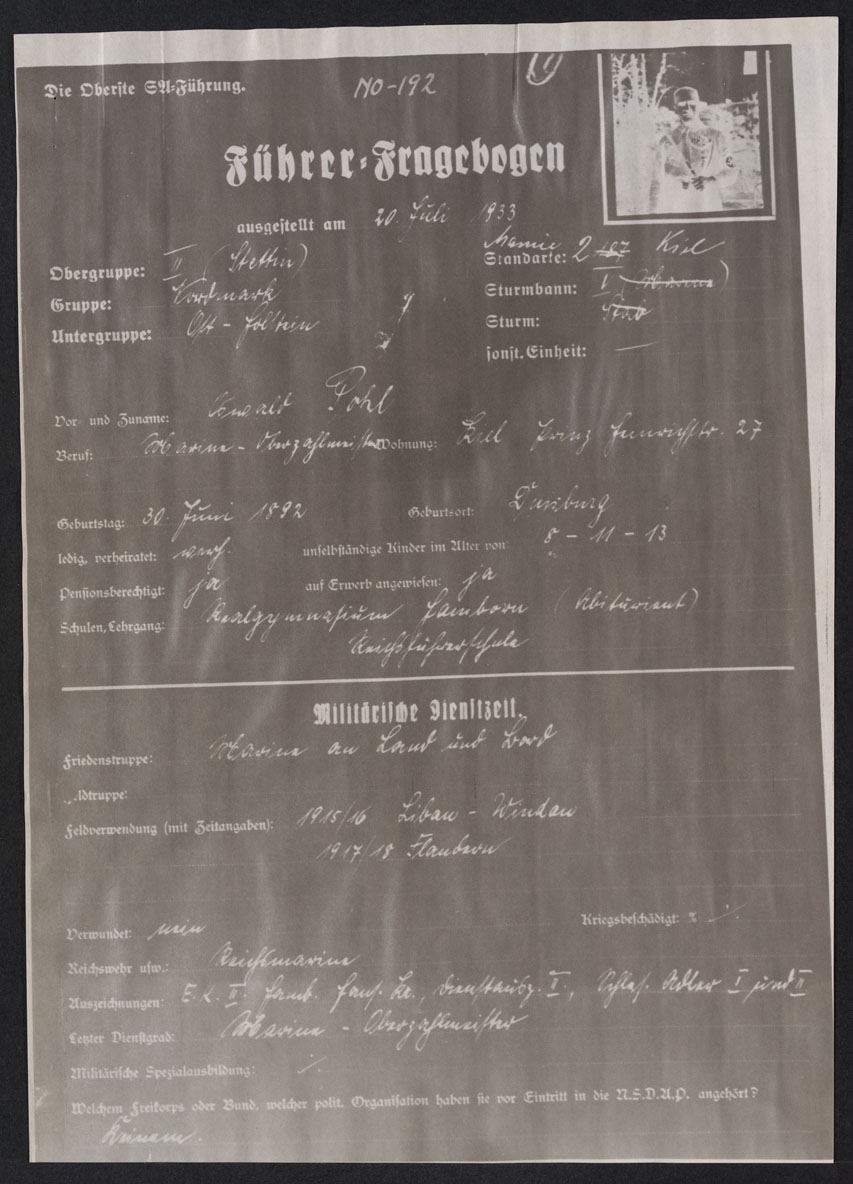 Die Oberste SA-Führung.
NO-192
Führer-Fragebogen
ausgestellt am 20. Juli 1933
Obergruppe: II (Stettin)
Gruppe: Nordmark
Untergruppe: Ost-Holstein
Marine Standarte: 2 187 Kiel
Sturmbann: I (Marine)
Sturm: Stab
sonst. Einheit: —
Vor- und Zuname: Oswald Pohl
Beruf: Marine-Oberzahlmeister Wohnung: Kiel Prinz Heinrichstr. 27
Geburtstag: 30. Juni 1892 Geburtsort: Duisburg
ledig, verheiratet: verh. unselbständige Kinder im Alter von: 8 - 11 - 13
Pensionsberechtigt: ja auf Erwerb angewiesen: ja
Schulen, Lehrgang: Realgymnasium Hamborn (Abiturient)
Reichsführerschule
Militärische Dienstzeit.
Friedenstruppe: Marine an Land und Bord
ldtruppe:
Feldverwendung (mit Zeitangaben): 1915/16 Libau - Windau
1917/18 Flandern
Verwundet: nein Kriegsbeschädigt: %
Reichswehr usw.: Reichsmarine
Auszeichnungen: E.K. II. Hamb. Hans. Kr., Dienstausz. II., Schles. Adler I und II
Letzter Dienstgrad: Marine-Oberzahlmeister
Militärische Spezialausbildung:
Welchem Freikorps oder Bund, welcher polit. Organisation haben sie vor Eintritt in die N.S.D.A.P. angehört?
Keinem.